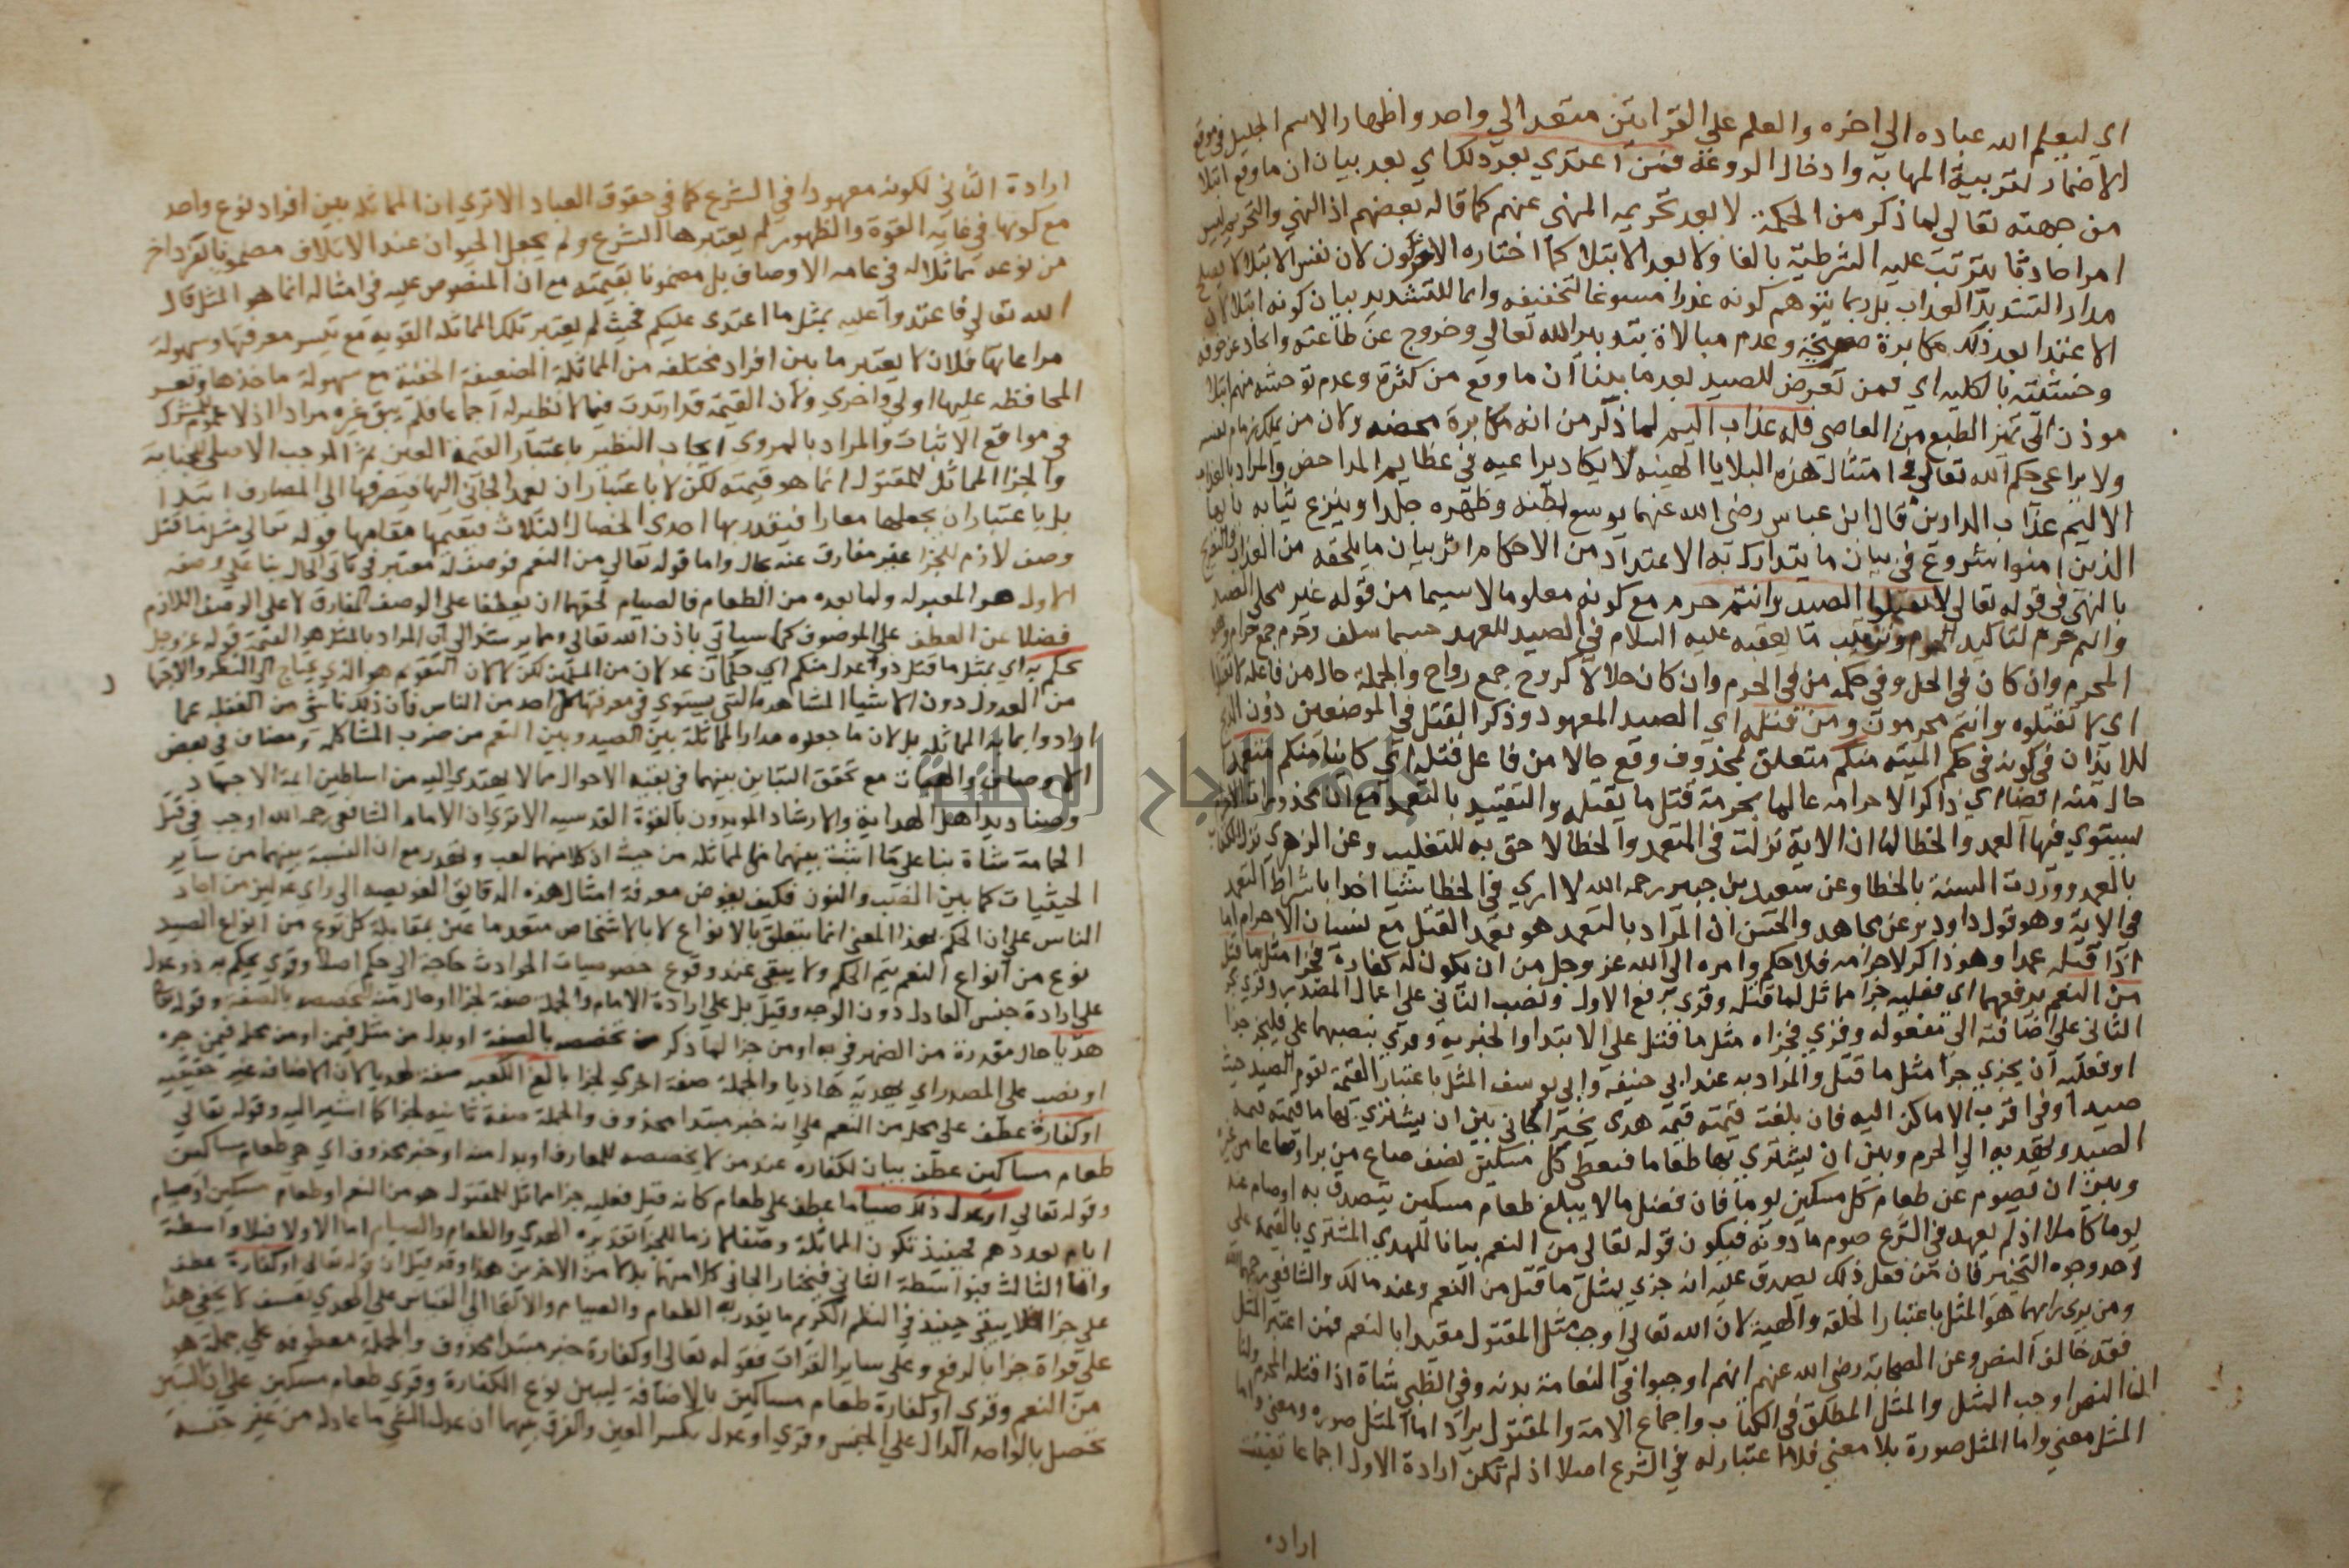 اي ليعلم الله عباده الي اخره والعلم علي القراءتين متعد الي واحد واظهار الاسم الجليل في موقع
الاضمار لتربية المهابة وادخال الروعة فمن اعتدي بعد ذلك اي بعد بيان ان ما وقع ابتلا
من جهته تعالي لما ذكر من الحكمة لا بعد تحريمه المنهي عنهم كما قاله بعضهم اذ النهي والتحريم ليس
امرا حادثا يترتب عليه الشرطية بالفا ولا بعد الابتلا كما اختاره الاخرون لان نفس الابتلا لا يصلح
مدار التشديد العذاب بل ربما يتوهم كونه عذرا مسوغا لتخفيفه وانما للتشديد بيان كونه ابتلا لان
الاعتدا بعد ذلك مكابرة صريحة وعدم مبالاة بتدبير الله تعالي وخروج عن طاعته وانخلاع عن خوفه
وخشيته بالكليه اي فمن تعرض للصيد بعد ما بينا ان ما وقع من كثرة وعدم توحشه منهم ابتلا
موذن الي تميز المطيع من العاصي فله عذاب اليم لما ذكر من انه مكابرة محضه ولان من يملك زمام نفسه
ولا يراعي حكم الله تعالي في امثال هذه البلايا الهينه لا يكاد يراعيه في عظايم المداحض والمراد بالعذاب
الاليم عذاب الدارين قال ابن عباس رضي الله عنهما يوسع بطنه وظهره جلدا وينزع ثيابه يا ايها
الذين امنوا شروع في بيان ما يتدارك به الاعتدا من الاحكام اثر بيان ما يلحقه من العذاب والتصريح
بالنهي في قوله تعالي لا تقتلوا الصيد وانتم حرم مع كونه معلوما لاسيما من قوله غير محلي الصيد
وانتم حرم لتاكيد الحرمة وترتيب ما يعقبه عليه السلام في الصيد للعهد حسبما سلف وحرم جمع حرام وهو
المحرم وان كان في الحل وفي حكمه من في الحرم وان كان حلالا كردح جمع رداح والجملة حال من فاعل لا تقتلوا
اي لا تقتلوه وانتم محرمون ومن قتله اي الصيد المعهود وذكر القتل في الموضعين دون الذبح
للايذان في كونه في حكم الميته منكم متعلق بمحذوف وقع حالا من فاعل قتله اي كاينا منكم متعمدا
حال منه ايضا اي ذاكرا لاحرامه عالما بحرمة قتل ما يقتله والتقييد بالتعمد مع ان محذورات الاحرام
يستوي فيها العمد والخطا لما ان الاية نزلت في المتعمد والخطا لاحق به للتغليب وعن الزهري نزل الكتاب
بالعمد ووردت السنة بالخطا وعن سعيد بن جبير رحمه الله لا اري في الخطا شيئا اخذا باشتراط التعمد
في الاية وهو قول داود وعن مجاهد والحسن ان المراد بالتعمد هو تعمد القتل مع نسيان الاحرام اما
اذا قتله عمدا وهو ذاكر لاحرامه فلا حكم وامره الي الله عز وجل من ان يكون له كفارة فجزا مثل ما قتل
من النعم برفعهما اي فعليه جزا مماثل لما قتله وقري برفع الاول ونصب الثاني علي اعمال المصدر وقري بجر
الثاني علي اضافة الي مفعوله وقري فجزاه مثل ما قتل علي الابتدا والخبريه وقري بنصبهما علي فليجز جزا
او فعليه ان يجزي جزا مثل ما قتل والمراد به عند ابي حنيفه وابي يوسف المثل باعتبار القيمة يقوم الصيد حيث
صيد او في اقرب الاماكن اليه فان بلغت قيمته قيمة هدي يخير الجاني بين ان يشتري بها ما قيمته قيمة
الصيد ويهديه الي الحرم وبين ان يشتري بها طعاما فيعطي كل مسكين نصف صاع من بر او صاعا من غيره
وبين ان يصوم عن طعام كل مسكين يوما فان فضل ما لا يبلغ طعام مسكين يتصدق به او صام عنه
يوما كاملا اذ لم يعهد في الشرع صوم ما دونه فيكون قوله تعالي من النعم بيانا للهدي المشتري بالقيمة علي
احد وجوه التخيير فان من فعل ذلك يصدق عليه انه جزي بمثل ما قتل من النعم وعند مالك والشافعي رحمهما الله
ومن يري رايهما هو المثل باعتبار الخلقه والهيه لان الله تعالي اوجب مثل المقتول مقيدا بالنعم فمن اعتبر المثل
فقد خالف النص وعن الصحابة رضي الله عنهم انهم اوجبوا في النعامة بدنه وفي الظبي شاة اذا قتله المحرم ولنا
ان النص اوجب المثل والمثل المطلق في الكتاب واجماع الامة والمقتول يراد اما المثل صوره ومعني واما
المثل معني واما المثل صورة بلا معني فلا اعتبار له في الشرع اصلا اذ لم تكن ارادة الاول اجماعا تعينت
اراده
ارادة الثاني لكونه معهودا في الشرع كما في حقوق العباد الا تري ان المماثلة بين افراد نوع واحد
مع كونها في غاية القوة والظهور لم يعتبرها الشرع ولم يجعل الحيوان عند الاتلاف مضمونا بفرد اخر
من نوعه مماثلا له في عامة الاوصاف بل مضمونا بقيمته مع ان المنصوص عليه في امثاله انما هو المثل قال
الله تعالي فاعتدوا عليه بمثل ما اعتدي عليكم فحيث لم يعتبر تلك المماثلة القويه مع تيسر معرفتها وسهولة
مراعاتها فلان لا يعتبر ما بين افراد مختلفه من المماثلة الضعيفة الخفية مع سهولة ماخذها وتعسر
المحافظه عليها اولي واحري ولان القيمة قد اريدت فيما لا نظير له اجماعا فلم يبق غيره مرادا اذ لا عموم للمشترك
في مواقع الاثبات والمراد بالمروي ايجاب النظير باعتبار القيمة لا العين ثم الموجب الاصلي للجناية
والجزا المماثل للمقتول انما هو قيمته لكن لا باعتبار ان يعمد الجاني اليها فيصرفها الي المصارف ابتدا
بل باعتبار ان يجعلها معيارا فيقدر بها احدي الخصال الثلاث فيقيمها مقامها قوله تعالي مثل ما قتل
وصف لازم للجزا غير مفارق عنه بحال واما قوله تعالي من النعم فوصف له معتبر في ثاني الحال بنا علي وصفه
الاول هو المعبر له ولما بعده من الطعام والصيام لحقهما ان يعطفا علي الوصف المفارق لا علي الوصف اللازم
فضلا عن العطف علي الموصوف كما سياتي باذن الله تعالي ومما يرشدك الي ان المراد بالمثل هو القيمة قوله عز وجل
يحكم به اي بمثل ما قتل ذوا عدل منكم اي حكمان عدلان من المسلمين لكن لا لان التقويم هو الذي يحتاج الي النظر والاجتهاد
من العدول دون الاشيا المشاهده التي يستوي في معرفتها كل احد من الناس فان ذلك ناشي من الغفله عما
ارادوا بما به المماثلة بل لان ما جعلوه مدار المماثلة بين الصيد وبين النعم من ضرب المشاكله ومضاه في بعض
الاوصاف والهيات مع تحقق التباين بينهما في بقية الاحوال مما لا يهتدي اليه من اساطين ائمة الاجتهاد
وصناديد اهل الهداية والارشاد المويدون بالقوة القدسيه الا تري ان الامام الشافعي رحمه الله اوجب في قتل
الحمامة شاة بنا علي ما اثبت بينهما من المماثله من حيث ان كلا منهما يعب ويهدر مع ان النسبة بينهما من ساير
الحيثيات كما بين الضب والنون فكيف يفوض معرفة امثال هذه الدقايق العويصه الي راي عدلين من احاد
الناس علي ان الحكم بهذا المعني انما يتعلق بالانواع لا بالاشخاص فبعد ما عين بمقابلة كل نوع من انواع الصيد
نوع من انواع النعم يتم الحكم ولا يبقي عند وقوع خصوصيات الحوادث حاجة الي حكم اصلا وقري يحكم به ذو عدل
علي ارادة جنس العادل دون الوحده وقيل بل علي ارادة الامام والجملة صفة لجزا او حال منه لتخصصه بالصفة وقوله تعالي
هديا حال مقدرة من الضمير في به او من جزا لما ذكر من تخصصه بالصفة او بدل من مثل فيمن او من محله فيمن جره
او نصب علي المصدر اي يهديه هديا والجملة صفة اخري لجزا بالغ الكعبه صفة لهديا لان الاضافه غير حقيقيه
او كفارة عطف علي محل من النعم علي انه خبر مبتدا محذوف والجملة صفة ثانيه لجزا كما اشير اليه وقوله تعالي
طعام مساكين عطف بيان لكفاره عند من لا يخصصه للمعارف او بدل منه او خبر محذوف اي هي طعام مساكين
وقوله تعالي او عدل ذلك صياما عطف علي طعام كانه قيل فعليه جزا مماثل للمقتول هو من النعم او طعام مسكين او صيام
ايام بعددهم فحينيذ تكون المماثلة وصفا لازما للجزا تقديره الهدي والطعام والصيام اما الاولان فبلا واسطة
واما الثالث فبواسطة الثاني فيختار الجاني كلا منهما بدلا من الاخرين هذا وقد قيل ان قوله تعالي او كفارة عطف
علي جزا فلا يبقي حينيذ في النظم الكريم ما يقدر به الطعام والصيام والالتجا الي القياس علي الهدي تعسف لا يخفي هذا
علي قراة جزا بالرفع وعلي ساير القرات فقوله تعالي او كفارة خبر مبتدا محذوف والجملة معطوفه علي جملة هو
من النعم وقري او كفارة طعام مساكين بالاضافة ليبين نوع الكفارة وقري طعام مسكين علي ان التبيين
يحصل بالواحد الدال علي الجنس وقري او عدل بكسر العين والفرق بينهما ان عدل الشي ما عادله من غير جنسه